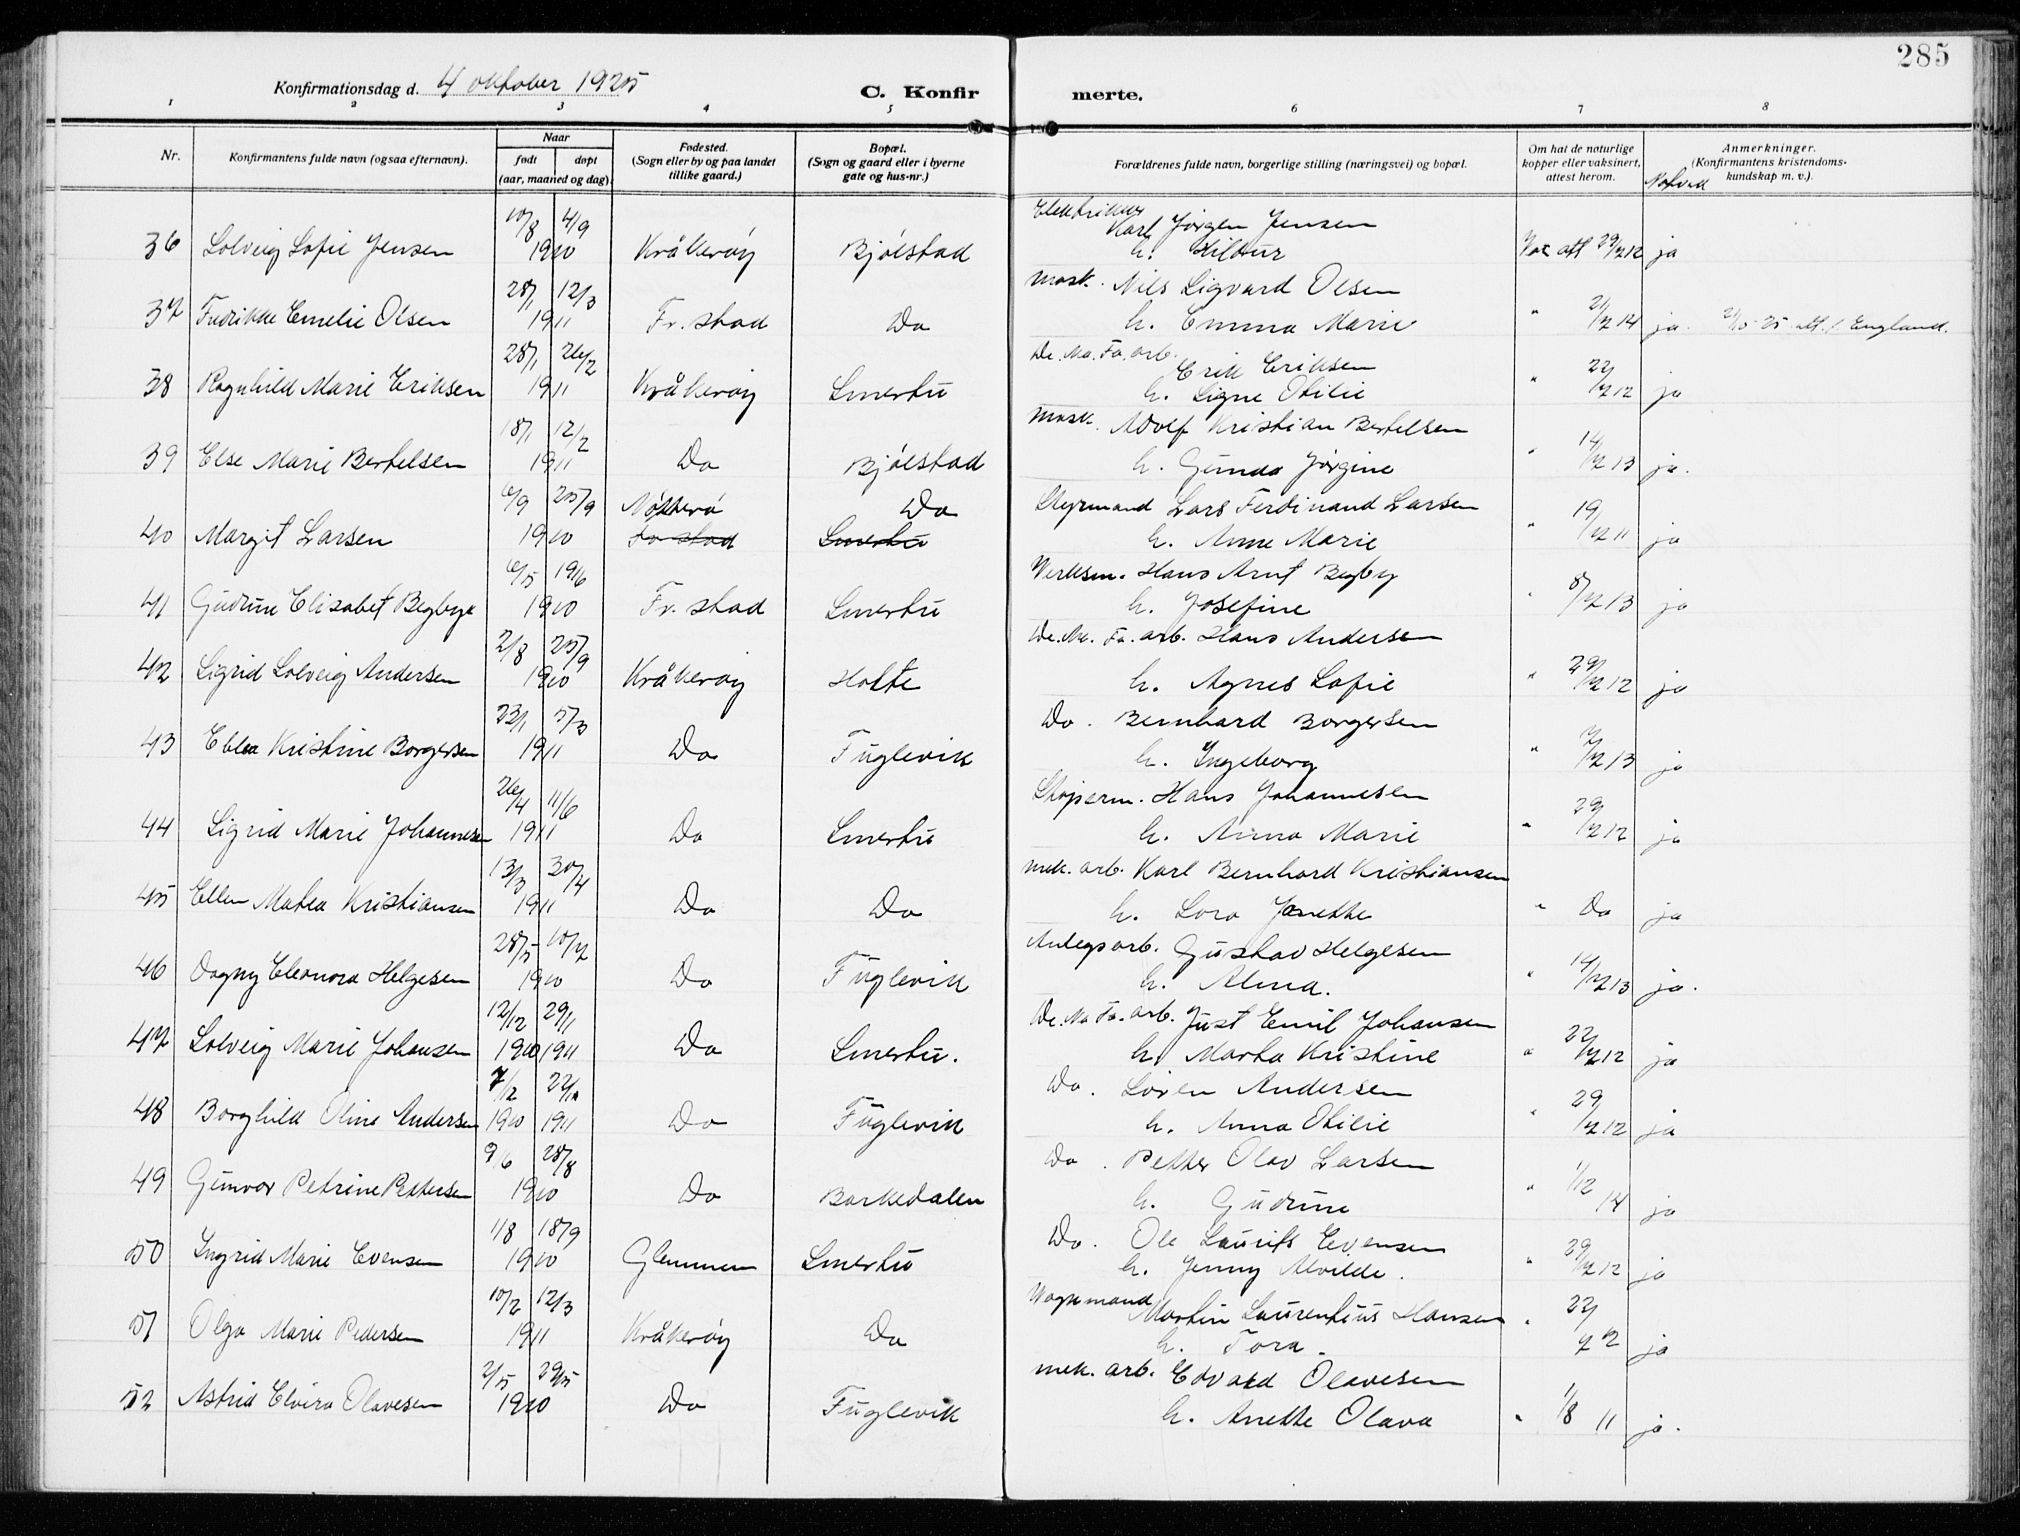 285
Konfirmationsdag d. 4 oktober 1925
C. Konfir merte.
1 2 3 4 5 6 7 8
Nr.
Konfirmantens fulde navn (ogsaa efternavn).
Naar
født døpt
(aar, maaned og dag).
Fødested.
(Sogn eller by og paa landet
tillike gaard.)
Bopæl.
(Sogn og gaard eller i byerne
gate og hus-nr.)
Forældrenes fulde navn, borgerlige stilling (næringsvei) og bopæl.
Om hat de naturlige
kopper eller vaksinert,
attest herom.
Anmerkninger.
(Konfirmantens kristendoms-
kundskap m. v.).
10/8 4/9 Karl Jørgen Jensen
36 Solveig Sofie Jensen 1910 Kråkerøy Bjølstad h. Hildur Vac att 29/7 12 ja
28/1 12/3 Mask. Nils Sigvard Olsen
37 Fredrikke Emelie Olsen 1911 Fr.stad Do h. Emma Marie " 21/7 14 ja. England.
28/1 26/2 De. No. Fa. arb. Erik Eriksen
38 Ragnhild Marie Eriksen 1911 Kråkerøy Smertu h. Signe Otilie " 22/7 12 ja
18/1 12/2 Mask. Adolf Kristian Bertelsen
39 Else Marie Bertelsen 1911 Do Bjølstad h. Gunda Jørgine " 14/7 13 ja.
6/9 25/9 Nøtterø Do Styrmand Lars Ferdinand Larsen
40 Margit Larsen 1910 Fr stad Smertu h. Anne Marie " 19/7 11 ja
6/5 19/6 Verksm. Hans Arnt Begby
41 Gudrun Elisabet Begbye 1910 Fr. stad Smertu h. Josefine " 8/7 13 ja
2/8 25/9 De. No. Fa. arb. Hans Andersen
42 Sigrid Solveig Andersen 1910 Kråkerøy Holte h. Agnes Sofie " 29/7 12 ja
23/1 5/3 Do. Bernhard Borgersen
43 Ebba Kristine Borgersen 1911 Do Fuglevik h. Ingeborg " 7/7 13 ja
26/4 11/6 Skipsrm. Hans Johannesen
44 Sigrid Marie Johannesen 1911 Do Smertu h. Anna Marie " 29/7 12 ja
13/3 30/4 mek. arb. Karl Bernhard Kristiansen
45 Ellen Matea Kristiansen 1911 Do Do h. Lora Janette " Do ja
28/5 10/7 Anlegsarb. Gustav Helgesen
46 Dagny Eleonora Helgesen 1910 Do Fuglevik h. Alma. " 14/7 13 ja.
12/12 29/1 De. No Fa. arb. Just Emil Johansen
47 Solveig Marie Johansen 1910 1911 Do Smertu. h. Marta Kristine " 22/7 12 ja
7/12 22/1 Do. Søren Andersen
48 Borghild Oline Andersen 1910 1911 Do Fuglevik h. Anna Otilie " 29/7 12 ja
9/6 28/8 Do. Petter Olav Larsen
49 Gunvor Petrine Pettersen 1910 Do Barkedalen h. Gudrun " 1/12 14 ja
1/8 18/9 Do. Ole Laurits Evensen
50 Ingrid Marie Evensen 1910 Glemmen Smertu h. Jenny Alvilde. " 29/7 12 ja
10/2 12/3 Martin Laurentius Hansen " 22/
51 Olga Marie Pedersen 1911 Kråkerøy Do h. Tora. ja
2/5 29/5 mek. arb. Edvard Olavesen
52 Astrid Elvira Olavesen 1910 Do Fuglevik h. Anette Olava " 1/8 11 ja.